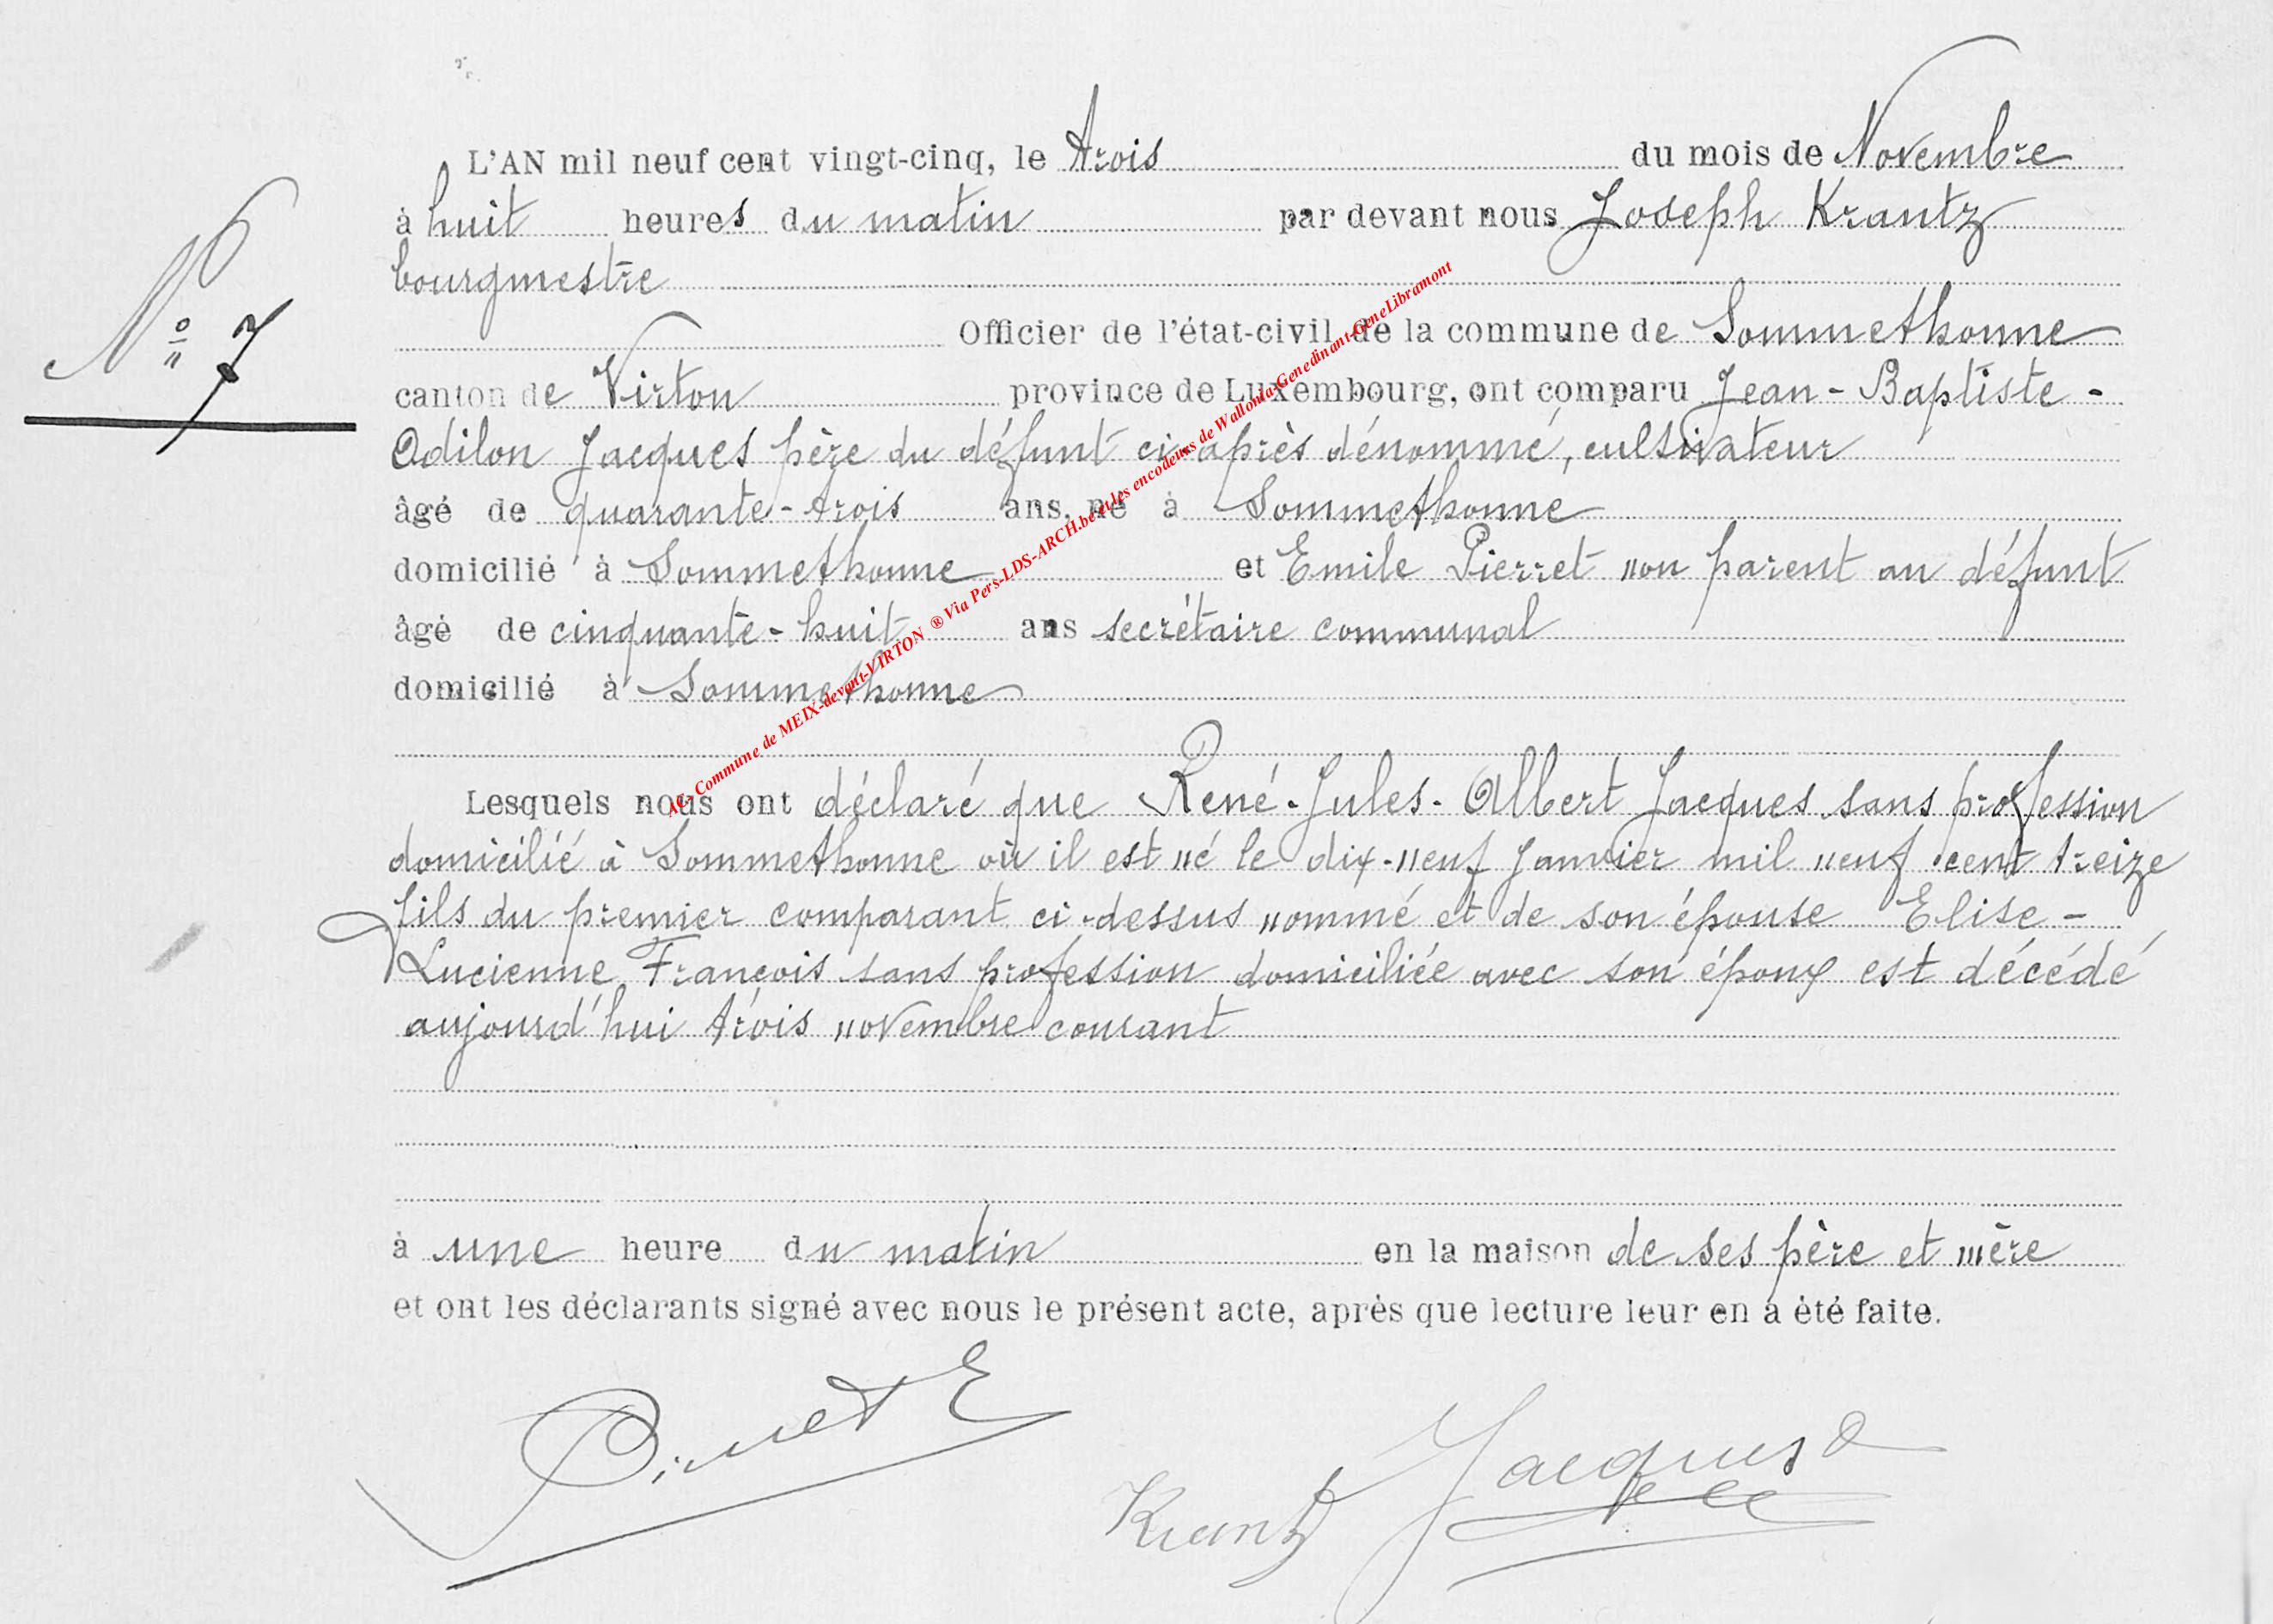 L'AN mil neuf cent vingt-cinq, le trois du mois de Novembre
à huit heures du matin par devant nous Joseph Krantz
bourgmestre
Officier de l'état-civil de la commune de Sommethonne
N° 7
canton de Virton province de Luxembourg, ont comparu Jean-Baptiste-
Odilon Jacques père du défunt ci-après dénommé, cultivateur
âgé de quarante-trois ans, né à Sommethonne
domicilié à Sommethonne et Emile Pierret non parent au défunt
âgé de cinquante-huit ans secrétaire communal
domicilié à Sommethonne
Lesquels nous ont déclaré que René-Jules-Albert Jacques sans profession
domicilié à Sommethonne où il est né le dix-neuf Janvier mil neuf cent treize
fils du premier comparant ci-dessus nommé et de son épouse Elise-
Lucienne François sans profession domiciliée avec son époux est décédé
aujourd'hui trois novembre courant
à une heure du matin en la maison de ses père et mère
et ont les déclarants signé avec nous le présent acte, après que lecture leur en a été faite.
Pierret E
Jacques O
Krantz
AC-Commune de MEIX-devant-VIRTON ® Via Pers-LDS-ARCH.be et les encodeurs de Wallonia-Genedinant-GeneLibramont